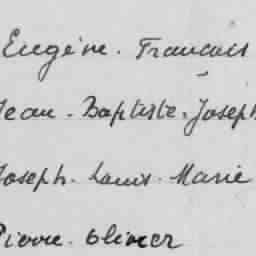 Eugène. Francois
Jean. Baptiste. Joseph
Joseph. Louis. Marie
Pierre. Olivier